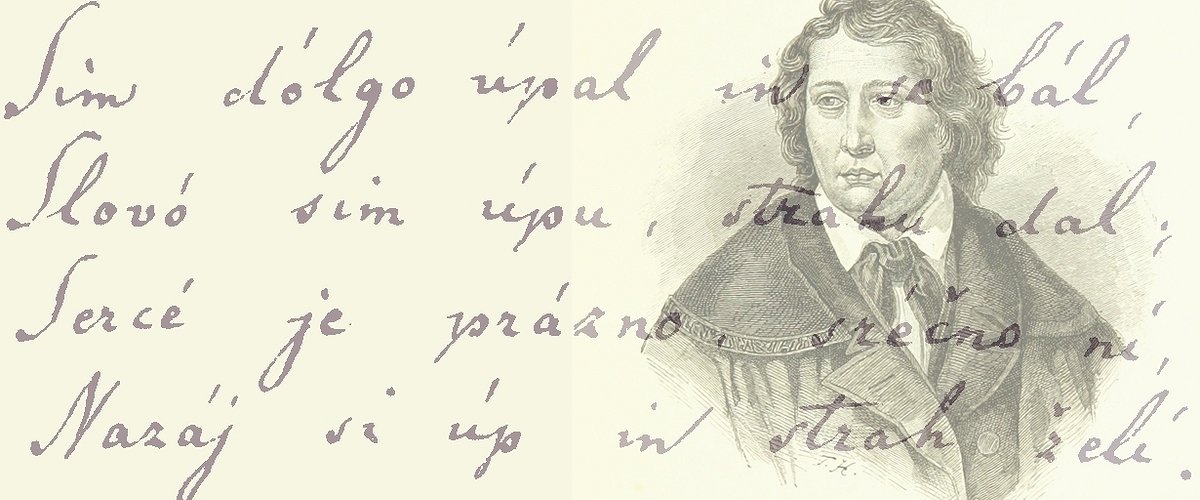 Sim dólgo úpal in se bál,
Slovó sim úpu, strahu dal;
Sercé je prázno, sréčno ní,
Nazáj si úp in strah želí.
T.H.